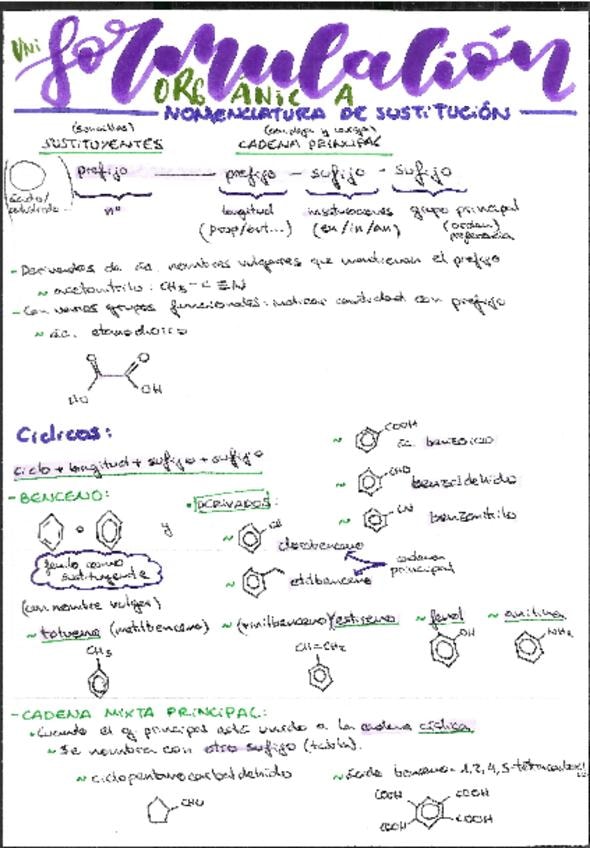 uni formulación
ORGÁNICA
NOMENCLATURA DE SUSTITUCIÓN
(sencillas)
SUSTITUYENTES
CADENA PRINCIPAL
prefijo — prefijo - sufijo - sufijo
nº longitud insaturaciones grupo principal
(prop/but...) (en/in/an) (orden) preferencia
- Derivados de ác. nombres vulgares que mantienen el prefijo
~ acetonitrilo: CH3 - C ≡ N
- Con varios grupos funcionales: indicar cantidad con prefijo
~ ác. etanodioico
O O
HO OH
Cíclicos:
ciclo + longitud + sufijo + sufijo
~ COOH ác. benzoico
~ CHO benzaldehído
~ CN benzonitrilo
- BENCENO:
o y
fenilo como sustituyente
• DERIVADOS:
~ Cl clorobenceno
~ etilbenceno
cadena principal
(con nombre vulgar)
~ tolueno (metilbenceno) ~ (vinilbenceno) estireno ~ fenol ~ anilina
CH3 CH=CH2 OH NH2
- CADENA MIXTA PRINCIPAL:
• Cuando el g. principal está unido a la cadena cíclica
~ Se nombra con otro sufijo (tabla).
~ ciclopentanocarbaldehído ~ ácido benceno-1,2,4,5-tetracarboxílico
CHO
COOH COOH
COOH COOH